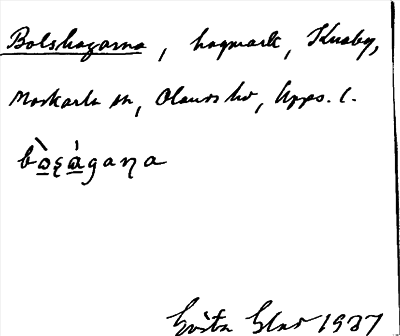 Bolshagarna, hagmark, Knaby,
Markarla sn, Olands hd, Upps. l.
bòșàgaηa
Gösta Glas 1937